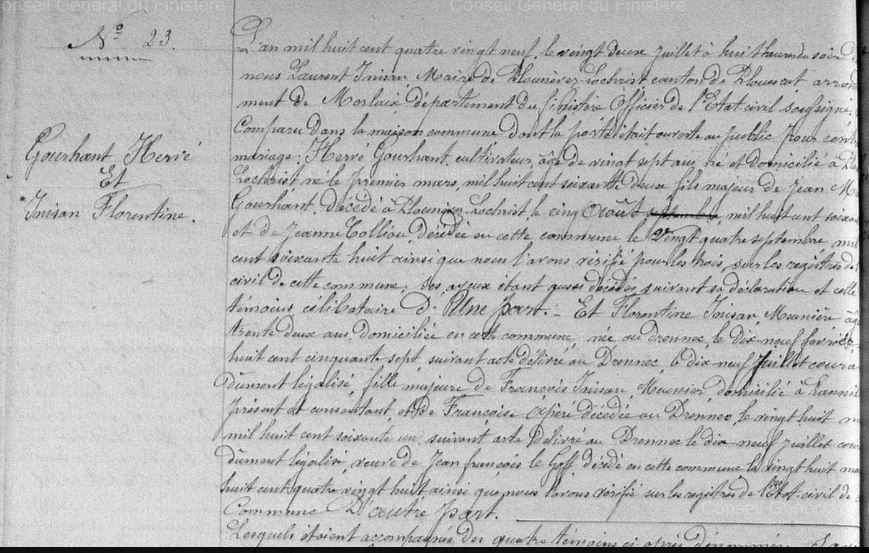 Conseil Général du Finistère
Conseil Général du Finistère
N° 23.
Gourhant Hervé
Et
Inisan Florentine.
L'an mil huit cent quatre vingt neuf, le vingt deux juillet à huit heures du soir
nous Laurent Inisan Maire de Plounévez-Lochrist canton de Plouescat arron
ment de Morlaix département du finistère Officier de l'Etat civil soussigné,
Comparu dans la maison commune dont la porte était ouverte au public pour cont
mariage: Hervé Gourhant, cultivateur, âgé de vingt sept ans, né et domicilié à
Lochrist né le premier mars, mil huit cent soixante deux fils majeur de Jean M
Gourhant, décédé à Plounévez-Lochrist, le cinq Août septembre, mil huit cent soixan
et de Jeanne Colliou, décédée en cette commune le Vingt quatre septembre, mil
cent soixante huit ainsi que nous l'avons vérifié pour les trois, sur les registres de
civil de cette commune, ses ayeux étant aussi décédés suivant sa déclaration et celle
témoins, célibataire D'Une part. - Et Florentine Inisan, Meunière âgé
trente deux ans, domiciliée en cette commune, née au Drennec, le dix neuf février
huit cent cinquante sept, suivant acte délivré au Drennec, le dix neuf juillet coura
dûment légalisé, fille majeure de François Inisan Meunier, domicilié à
présent et consentant et de Françoise décédée au Drennec, le vingt huit
mil huit cent soixante un, suivant acte délivré au Drennec le dix neuf juillet cou
dûment légalisé, veuve de Jean françois le Goff, décédé en cette commune le vingt huit ma
huit cent quatre vingt huit ainsi que nous l'avons vérifié sur les registres de l'Etat-civil de
Commune D'autre part.
Lesquels étaient accompagnés des quatre témoins ci après dénommés,